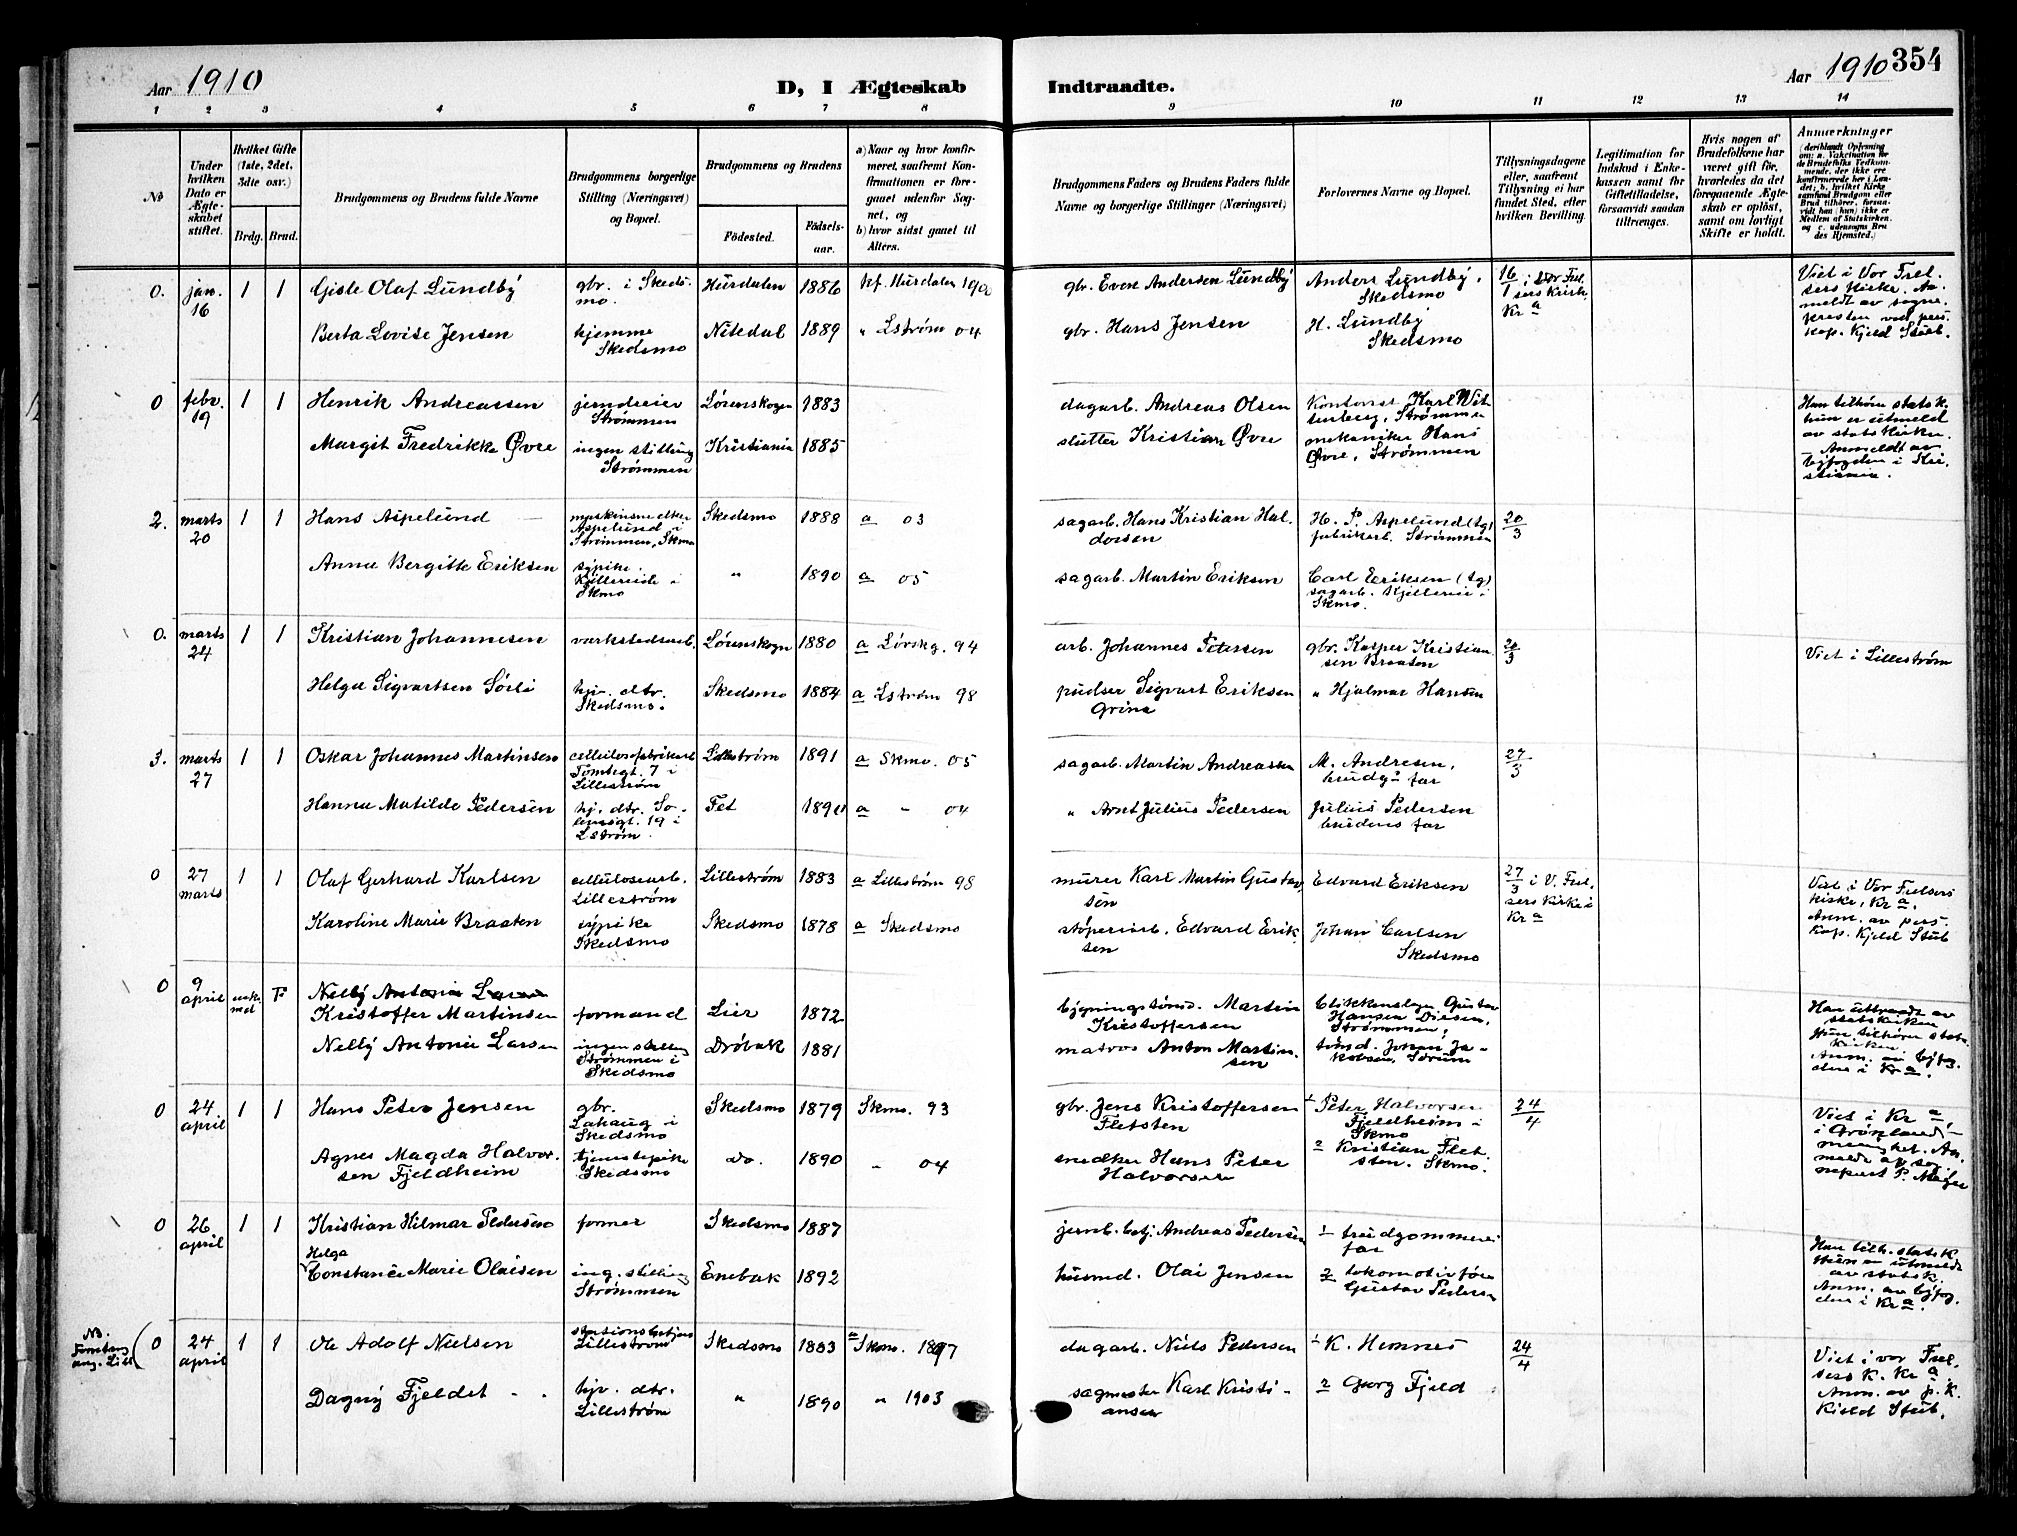 Aar 1910
D, I Ægteskab Indtraadte.
Aar 1910 354
1 2 3 4 5 6 7 8 9 10 11 12 13 14
№
Under hvilken Dato er Ægteskabet stiftet.
Hvilket Gifte (1ste, 2det, 3dte osv.)
Brdg. Brud.
Brudgommens og Brudens fulde Navne
Brudgommens borgerlige Stilling (Næringsvei) og Bopæl.
Brudgommens og Brudens
Fødested. Fødselsaar.
a) Naar og hvor konfirmeret, saafremt Konfirmationen er foregaaet udenfor Sognet, og
b) hvor sidst gaaet til Alters.
Brudgommens Faders og Brudens Faders fulde Navne og borgerlige Stillinger (Næringsvei)
Forlovernes Navne og Bopæl.
Tillysningsdagene eller, saafremt Tillysning ei har fundet Sted, efter hvilken Bevilling.
Legitimation for Indskud i Enkekassen samt for Giftetilladelse, forsaavidt saadan tiltrænges.
Hvis nogen af Brudefolkene har været gift før, hvorledes da det foregaaende Ægteskab er opløst, samt om lovligt Skifte er holdt.
Anmærkninger
0. jan. 16 1 1 Gisle Olaf Lundby gbr. i Skedsmo. Hurdalen 1886 kf. Hurdalen gbr. Even Andersen Lundby Anders Lundby, Skedsmo 16/1 i Vor Frelsers Kirke, Kr a
Viet i Vor Frelsers Kirke. Anmeldt av sognepresten ved perskap. Kjeld Stub.
Berta Lovise Jensen hjemme Skedsmo Nitedal 1889 " Lstrøm 04 gbr. Hans Jensen H. Lundby Skedsmo
0 febr. 19 1 1 Henrik Andreassen jerndreier Strømmen Lørenskogen 1883 dagarb. Andreas Olsen Kontorist Karl Wittenberg, Strømmen
Han tilhører statsk. hun er utmeldt av statskirken. Anmeldt av byfogden i Kristiania.
Margit Fredrikke Øvre ingen stilling Strømmen Kristiania 1885 Kristian Øvre mekaniker Hans Øvre, Strømmen
2. marts 20 1 1 Hans Aspelund Aspelund i Strømmen, Skmo Skedsmo 1888 a 03 sagarb. Hans Kristian Haldorsen H. P. Aspelund (tg) fabrikarb. Strømmen 20/3
Anna Bergitte Eriksen sypike. i Skmo " 1890 a 05 sagarb. Martin Eriksen Carl Eriksen (tg) sagarb. i Skmo.
0. marts 24 1 1 Kristian Johannesen verkstedsarb. Lørenskogn 1880 a Lørskg. 94 arb. Johannes Petersen gbr. Kasper Kristiansen Braaten Viet i Lillestrøm
Helga Sigvartsen Sörli hjv. dtr. Skedsmo. Skedsmo 1884 a Lstrøm 98 pudser Sigvart Eriksen Grina " Hjalmar Hansen
3. marts 27 1 1 Oskar Johannes Martinsen cellulosefabrikarb. Tomtegt. 7 i Lillestrøm Lillestrøm 1891 a Skmo. 05 sagarb. Martin Andreassen M. Andresen, brudg.s far 27/3
Hanna Matilde Pedersen hj. dtr. 19 i Lstrøm. Fet a " 04 " Arnt Julius Pedersen Julius Pedersen brudens far
0 27 marts 1 1 Olaf Gerhard Karlsen cellulosearb. Lillestrøm Lillestrøm 1883 a Lillestrøm 98 murer Karl Martin Gustavsen Edvard Eriksen 27/3 i V. Frelsers Kirke i Kr a
Viet i Vor Frelsers kirke, Kr a. Anm. av perskap. Kjeld Stub
Karoline Marie Braaten sypike Skedsmo Skedsmo 1878 a Skedsmo støperiarb. Edvard Eriksen Johan Carlsen Skedsmo
0 9 april F
Nelly Antonie Larsen
Kristoffer Martinsen formand Lier 1872 bygningstømd. Martin Kristoffersen Gustav Hansen Strømmen,
Han uttraadt av statskirken hun tilhører statskirken. Anm. av byfogden i Kr a.
Nelly Antonie Larsen ingen stilling Strømmen i Skedsmo Drøbak 1881 matros Anton Martinsen tømd. Johan Jakobsen, Sørum
0 24 april 1 1 Hans Peter Jensen gbr. i Skedsmo Skedsmo 1879 Skmo. 93 gbr. Jens Kristoffersen Fletsten 1 Peter Halvorsen Fjeldheim i Skmo 24/4
Viet i Kr a, i Grønland menighet.
Agnes Magda Halvorsen Fjeldheim tjenestepike Skedsmo Do. 1890 " 04 snedker Hans Peter Halvorsen 2 Kristian Fletsten. Skmo.
0 26 april 1 1 Kristian Hilmar Pedersen former Skedsmo 1887 jernb. betj. Andreas Pedersen 1 brudgommens far
Han tilh. statsk. av statsk. Anm. av byfogden i Kr a.
Helga
Constance Marie Olaisen ing. stilling Strømmen Enebak 1892 husmd. Olai Jensen 2 lokomotivfører Gustav Pedersen
NB. 0 24 april 1 1 Ole Adolf Nielsen stationsbetjent Lillestrøm Skedsmo 1883 a Skmo. 1897 dagarb. Niels Pedersen 1 K. Hemnes 24/4
Viet i vor Frelsers K. Kr a. Anm. av p.k. Kjeld Stub.
Dagny Fjeldet hjv. dtr. Lillestrøm " 1890 " 1903 sagmester Karl Kristiansen 2 Georg Fjeld